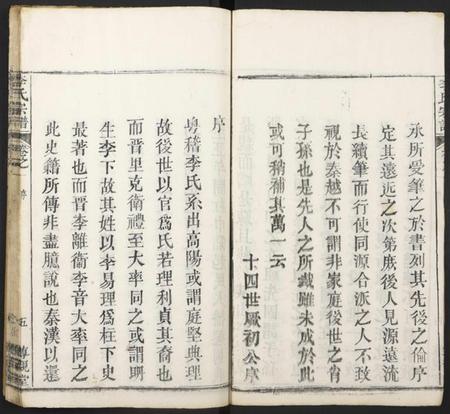 承所受筆之於書列其先後之倫序
定其遠近之次第庶後人見源遠流
長續筆而行使同源合派之人不致
視於秦越不可謂非家庭後世之肖
子孫也是先人之所鐵雖未成於此
或可稍補其萬一云
十四世厭初公序
序
粤稽李氏系出高陽或謂庭堅典理
故後世以官為氏若理利貞其裔也
而晋里克衛禮至大率同之或謂耼
生李下故其姓以李易理為柱下史
最著也而晋李離衛李音大率同之
此史籍所傳非盡臆說也秦漢以還
李氏宗譜
卷之一
序
五